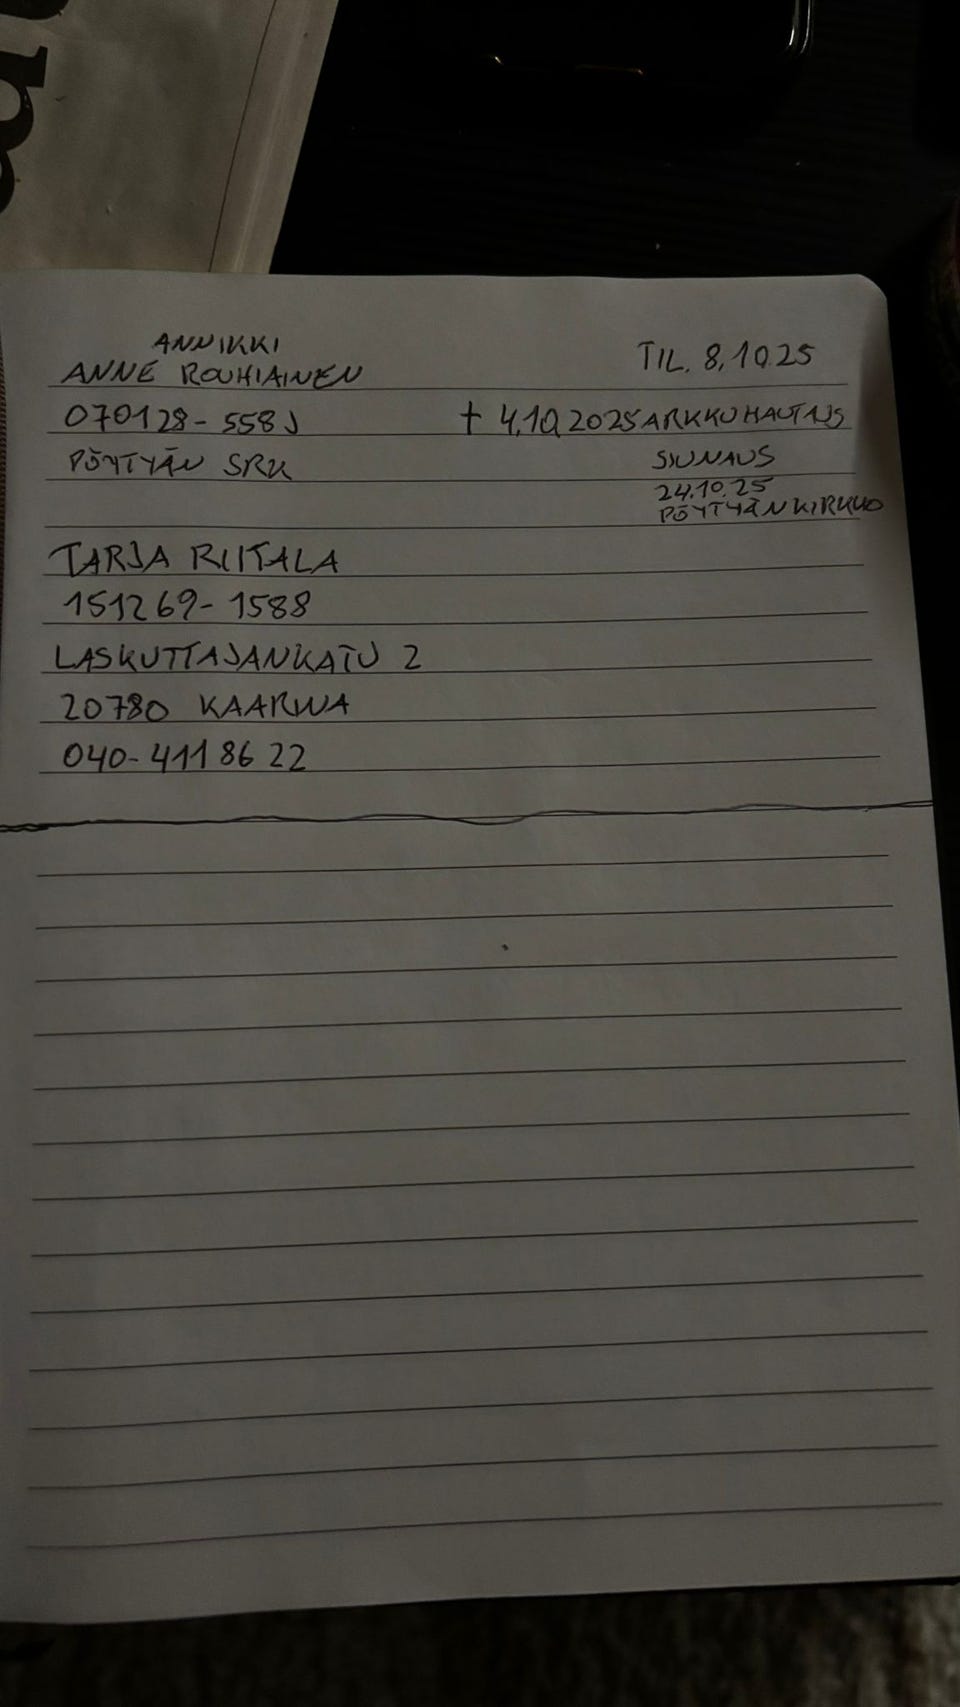 ANNIKKI
ANNE ROUHIAINEN
TIL. 8.10.25
070128-558J
† 4.10.2025 ARKKUHAUTAUS
PÖYTYÄN SRK
SIUNAUS
24.10.25
PÖYTYÄN KIRKKO
TARJA RIITALA
151269-1588
LASKUTTAJANKATU 2
20780 KAARINA
040-411 86 22